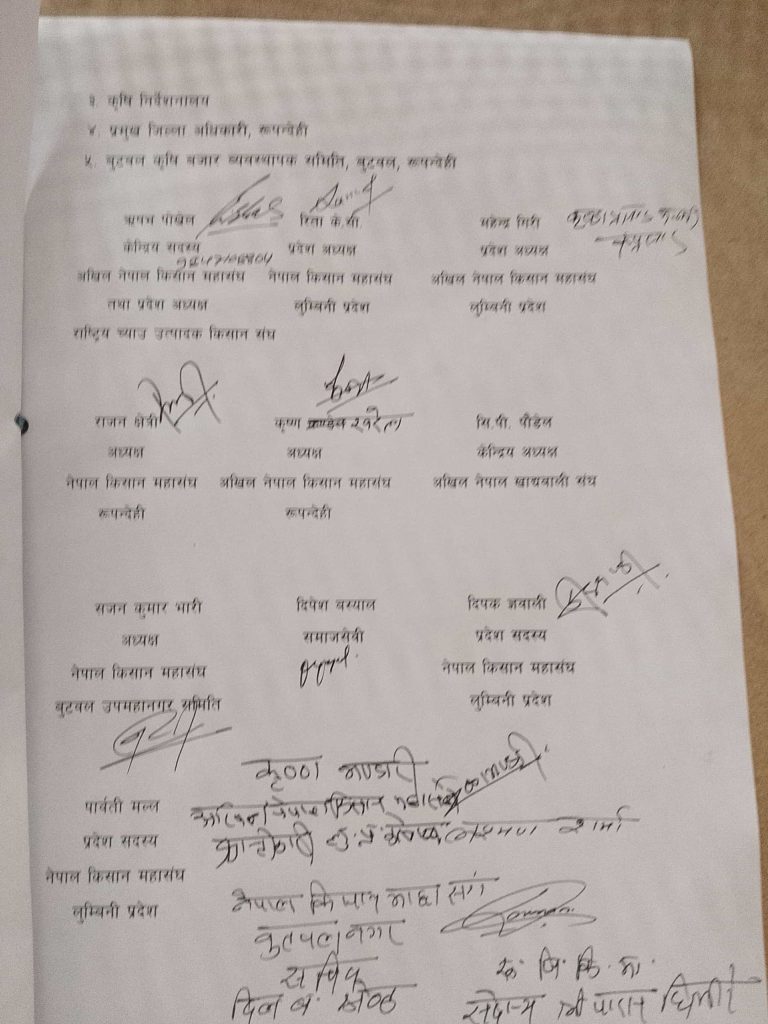 ३. कृषि निर्देशनालय
४. प्रमुख जिल्ला अधिकारी, रूपन्देही
५. बुटवल कृषि बजार व्यवस्थापक समिति, बुटवल, रूपन्देही
ऋषभ पोखेल रिता के.सी. महेन्द्र गिरी
केन्द्रिय सदस्य प्रदेश अध्यक्ष प्रदेश अध्यक्ष
अखिल नेपाल किसान महासंघ नेपाल किसान महासंघ अखिल नेपाल किसान महासंघ
तथा प्रदेश अध्यक्ष लुम्बिनी प्रदेश लुम्बिनी प्रदेश
राष्ट्रिय च्याउ उत्पादक किसान संघ
राजन क्षेत्री कृष्ण खरेल सि.पी. पौडेल
अध्यक्ष अध्यक्ष केन्द्रिय अध्यक्ष
नेपाल किसान महासंघ अखिल नेपाल किसान महासंघ अखिल नेपाल खाद्यबाली संघ
रूपन्देही रूपन्देही
सजन कुमार भारी दिपेश बस्याल दिपक ज्ञवाली
अध्यक्ष समाजसेवी प्रदेश सदस्य
नेपाल किसान महासंघ नेपाल किसान महासंघ
बुटवल उपमहानगर समिति लुम्बिनी प्रदेश
कृष्ण भण्डारी
पार्वती मल्ल अखिल नेपाल किसान
प्रदेश सदस्य क्रान्तिकारी लु.प्र. शर्मा
नेपाल किसान महासंघ
लुम्बिनी प्रदेश
नेपाल किसान माहा संग
नगर
सचिव
दिल ब. रु. जि. कि. म.
सदस्य